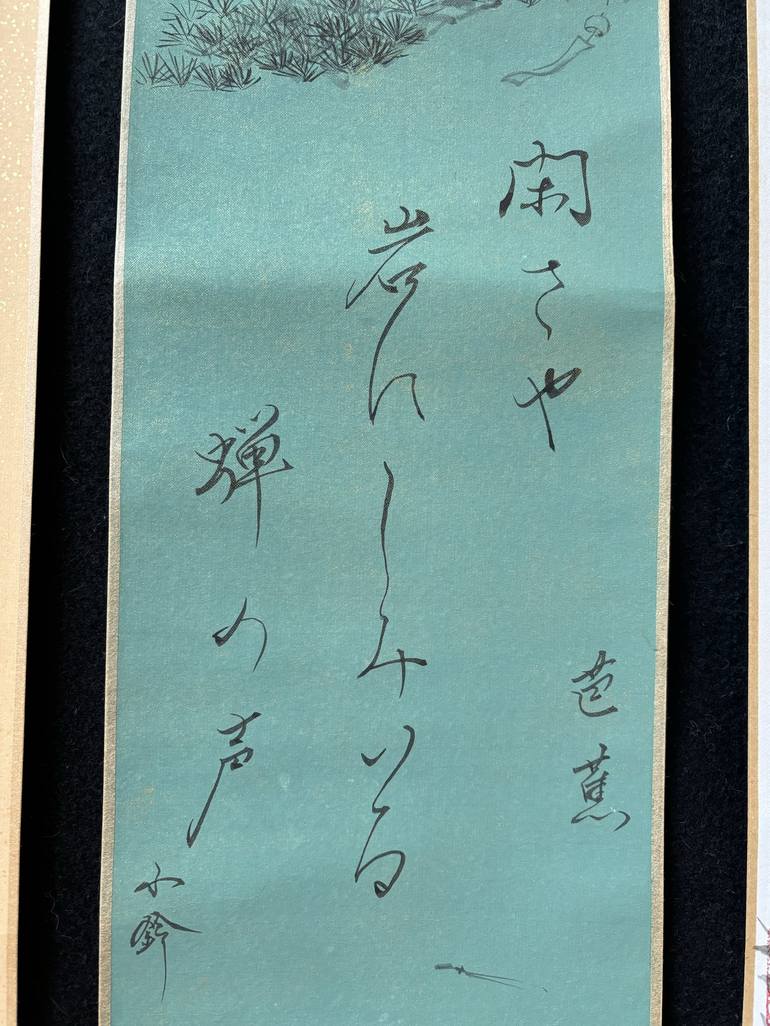 閑さや
岩にしみいる
蝉の声
芭蕉
小鈴